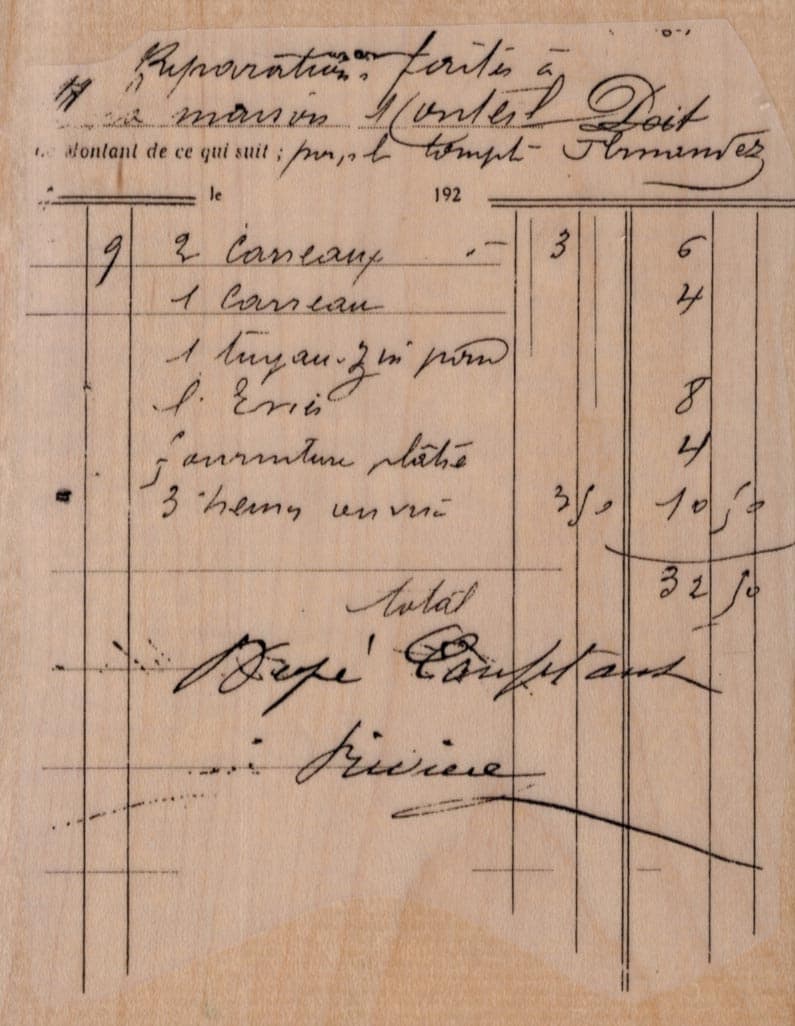 Réparations faites à
la maison Monteil Doit
Montant de ce qui suit ; pour le compte Fernandez
le 192
9 2 Carreaux 3 6
1 Carreau 4
1 tuyau zin pour
l'Evier 8
fourniture plâtre 4
3 heures ouvrier 3 50 10 50
32 50
total
Payé Comptant
Rivière